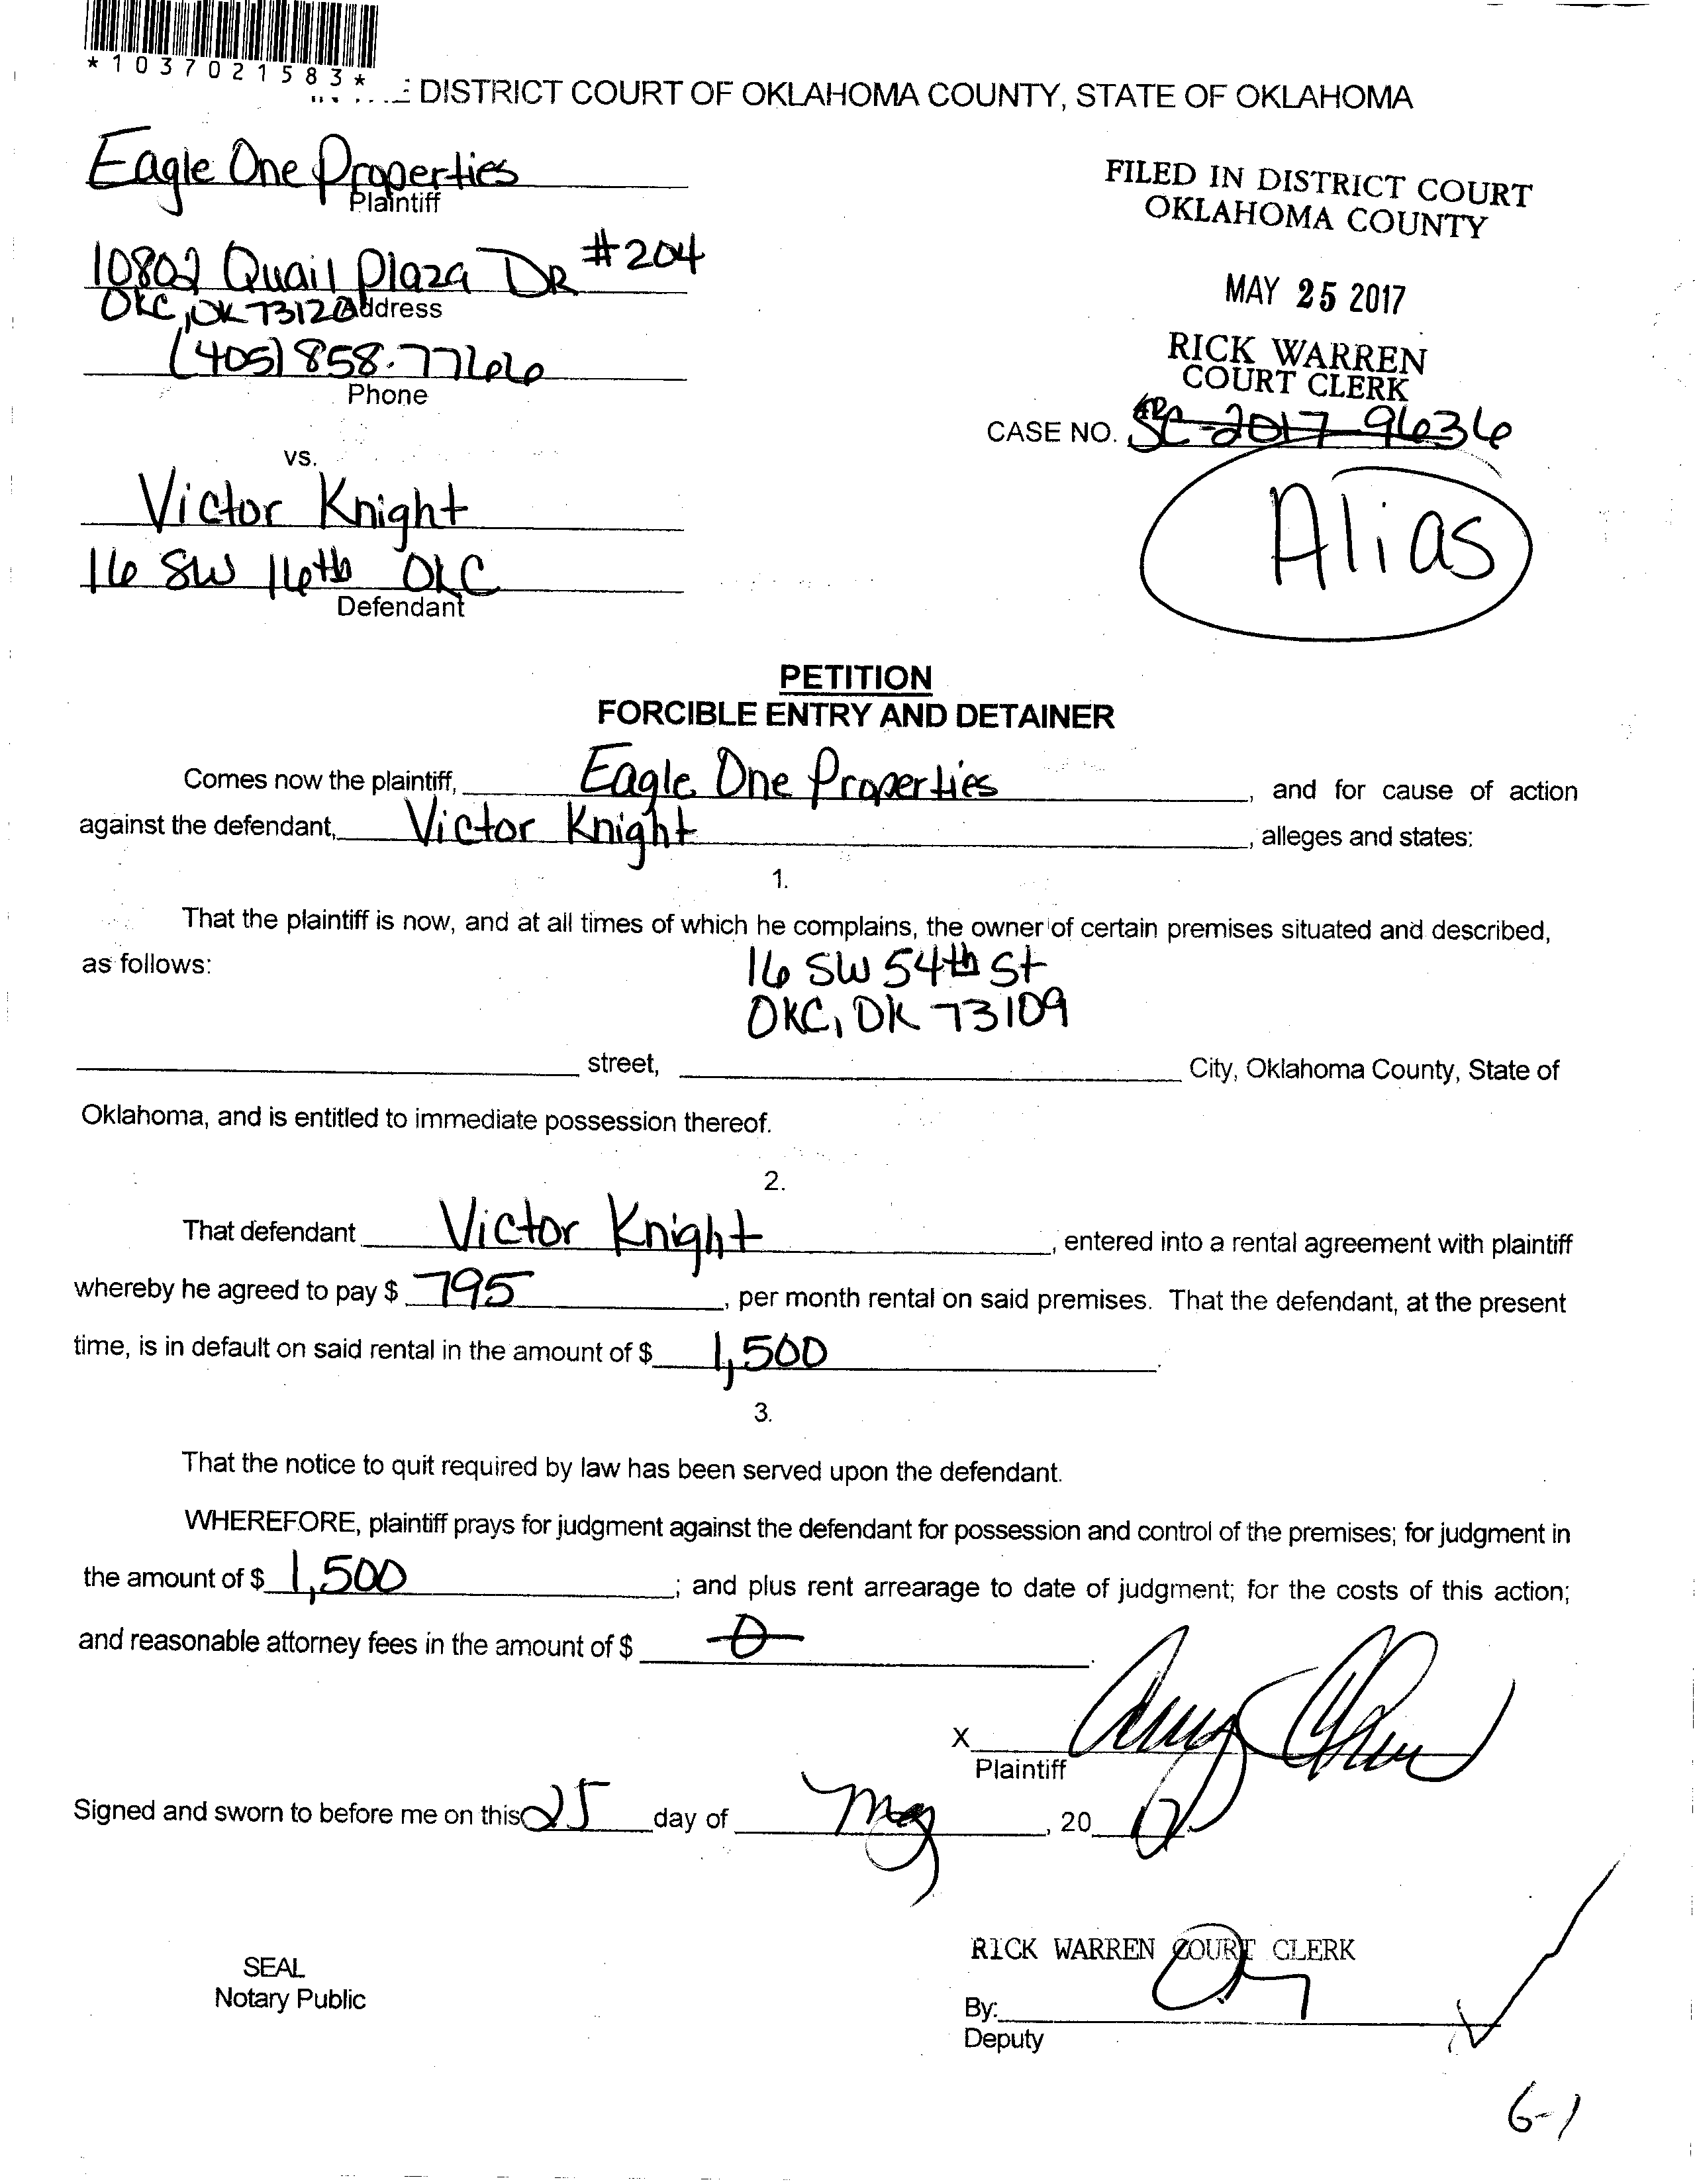 *1037021583*
DISTRICT COURT OF OKLAHOMA COUNTY, STATE OF OKLAHOMA
Eagle One Properties
Plaintiff
10802 Quail Plaza DR #204
OKC, OK 73120 Address
(405) 858-7766
Phone
vs.
Victor Knight
16 SW 16th OKC
Defendant
FILED IN DISTRICT COURT
OKLAHOMA COUNTY
MAY 25 2017
RICK WARREN
COURT CLERK
CASE NO. SC-2017-9636
Alias
PETITION
FORCIBLE ENTRY AND DETAINER
Comes now the plaintiff, Eagle One Properties, and for cause of action
against the defendant, Victor Knight, alleges and states:
1.
That the plaintiff is now, and at all times of which he complains, the owner of certain premises situated and described,
as follows: 16 SW 54th St
OKC, OK 73109
street, City, Oklahoma County, State of
Oklahoma, and is entitled to immediate possession thereof.
2.
That defendant Victor Knight, entered into a rental agreement with plaintiff
whereby he agreed to pay $ 795, per month rental on said premises. That the defendant, at the present
time, is in default on said rental in the amount of $ 1,500.
3.
That the notice to quit required by law has been served upon the defendant.
WHEREFORE, plaintiff prays for judgment against the defendant for possession and control of the premises; for judgment in
the amount of $ 1,500; and plus rent arrearage to date of judgment; for the costs of this action;
and reasonable attorney fees in the amount of $ 0.
X
Plaintiff
Signed and sworn to before me on this 25 day of May, 2017
RICK WARREN COURT CLERK
SEAL
Notary Public
By:
Deputy
6-1